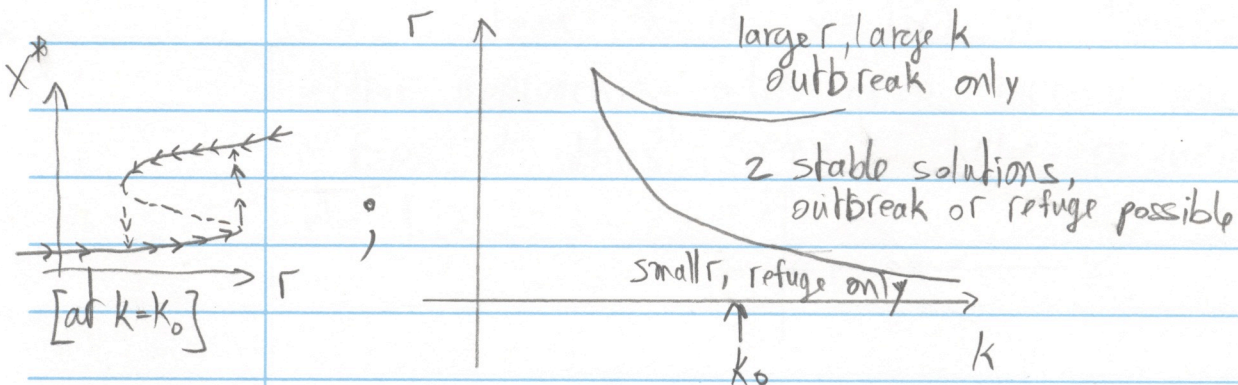 x*
r
[at k=k₀]
;
r
large r, large k
outbreak only
2 stable solutions,
outbreak or refuge possible
small r, refuge only
k₀
k